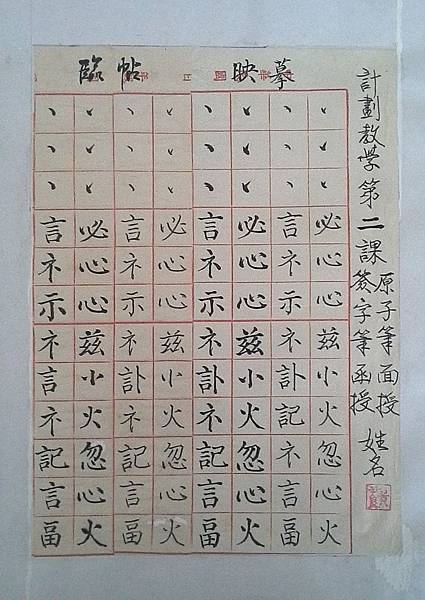 計劃教學第二課
原子筆面授
簽字筆函授
姓名
臨帖
映摹
丶丶丶必心心兹小火忽心火
丶丶丶言礻示礻訃記礻言畐
丶丶丶必心心兹小火忽心火
丶丶丶言礻示礻訃礻記言畐
丶丶丶必心心兹小火忽心火
丶丶丶言礻示礻訃礻記言畐
丶丶丶必心心兹小火忽心火
丶丶丶言礻示礻言礻記言畐